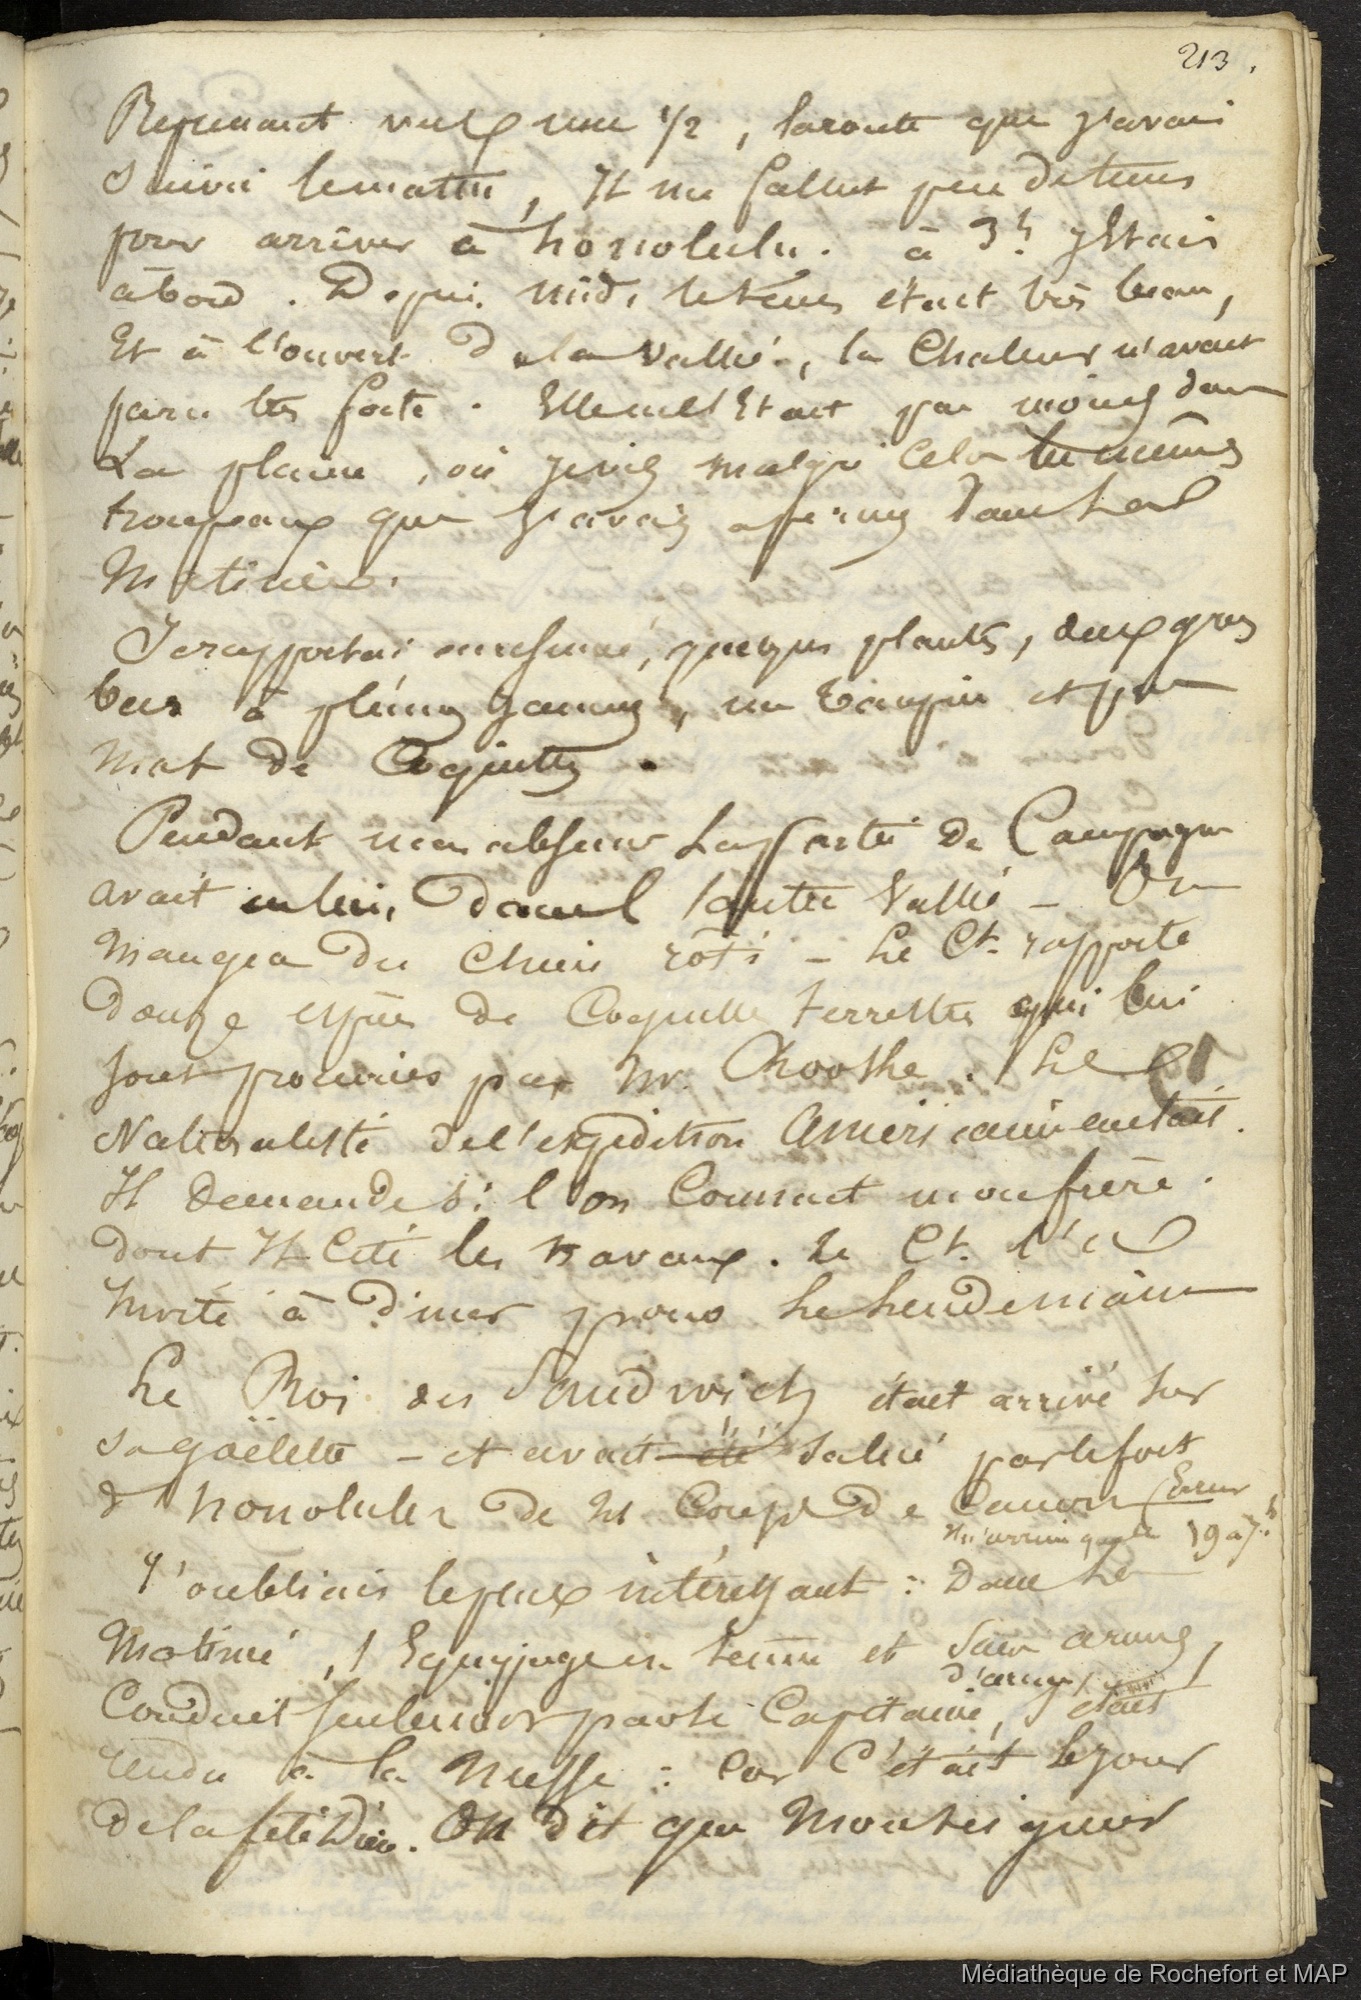 213.
Reprenant vers une 1/2, la route que j'avais
suivi le matin, Il me fallut peu de tems
pour arriver à honolulu. à 3h. j'Etais
à bord. Depuis midi le tems était très beau,
Et à l'ouvert de la Vallée, la Chaleur m'avait
paru très forte. Elle ne l'Etait pas moins dans
La plaine, où je vis malgré Cela les mêmes
troupeaux que j'avais aperçus dans La
Matinée.
Je rapportai en résumé, quelques plantes, deux gros
becs à plumes jaunes, un taupin et
mat de Coquilles.
Pendant mon absence La partie de Campagne
avait eu lieu, dans l'autre Vallée - On
Mangea du Chien rôti - Le Ct. rapporte
douze espèces de Coquilles terrestres qui lui
sont procurées par Mr. Choothe. Le
Naturaliste de l'expédition Américaine était.
Il demande si l'on Connait mon frère.
dont Il Cite les travaux. Le Ct. l'a
Invité à diner pour Le Lendemain
Le Roi des Sandwich était arrivé sur
sa goëlette - et avait été salué par le fort
d'honolulu de 21 Coups de Canon Erreur
Il n'arriva que le 19 à 7h
J'oubliais le plus intéressant : Dans La
Matinée, l'Equipage en tenue et Sans armes,
Conduit seulement par le Capitaine d'armes, s'était
rendu à la Messe : Car C'était le jour
de la fête Dieu. On dit que Monseigneur
Médiathèque de Rochefort et MAP